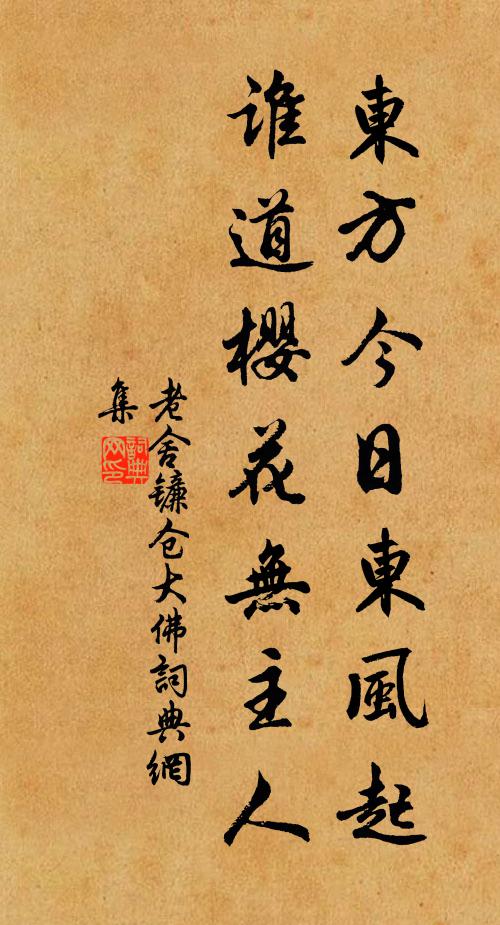 東方今日東風起
誰道櫻花無主人
老舍镰仓大佛詞典網
集
詞典
网印